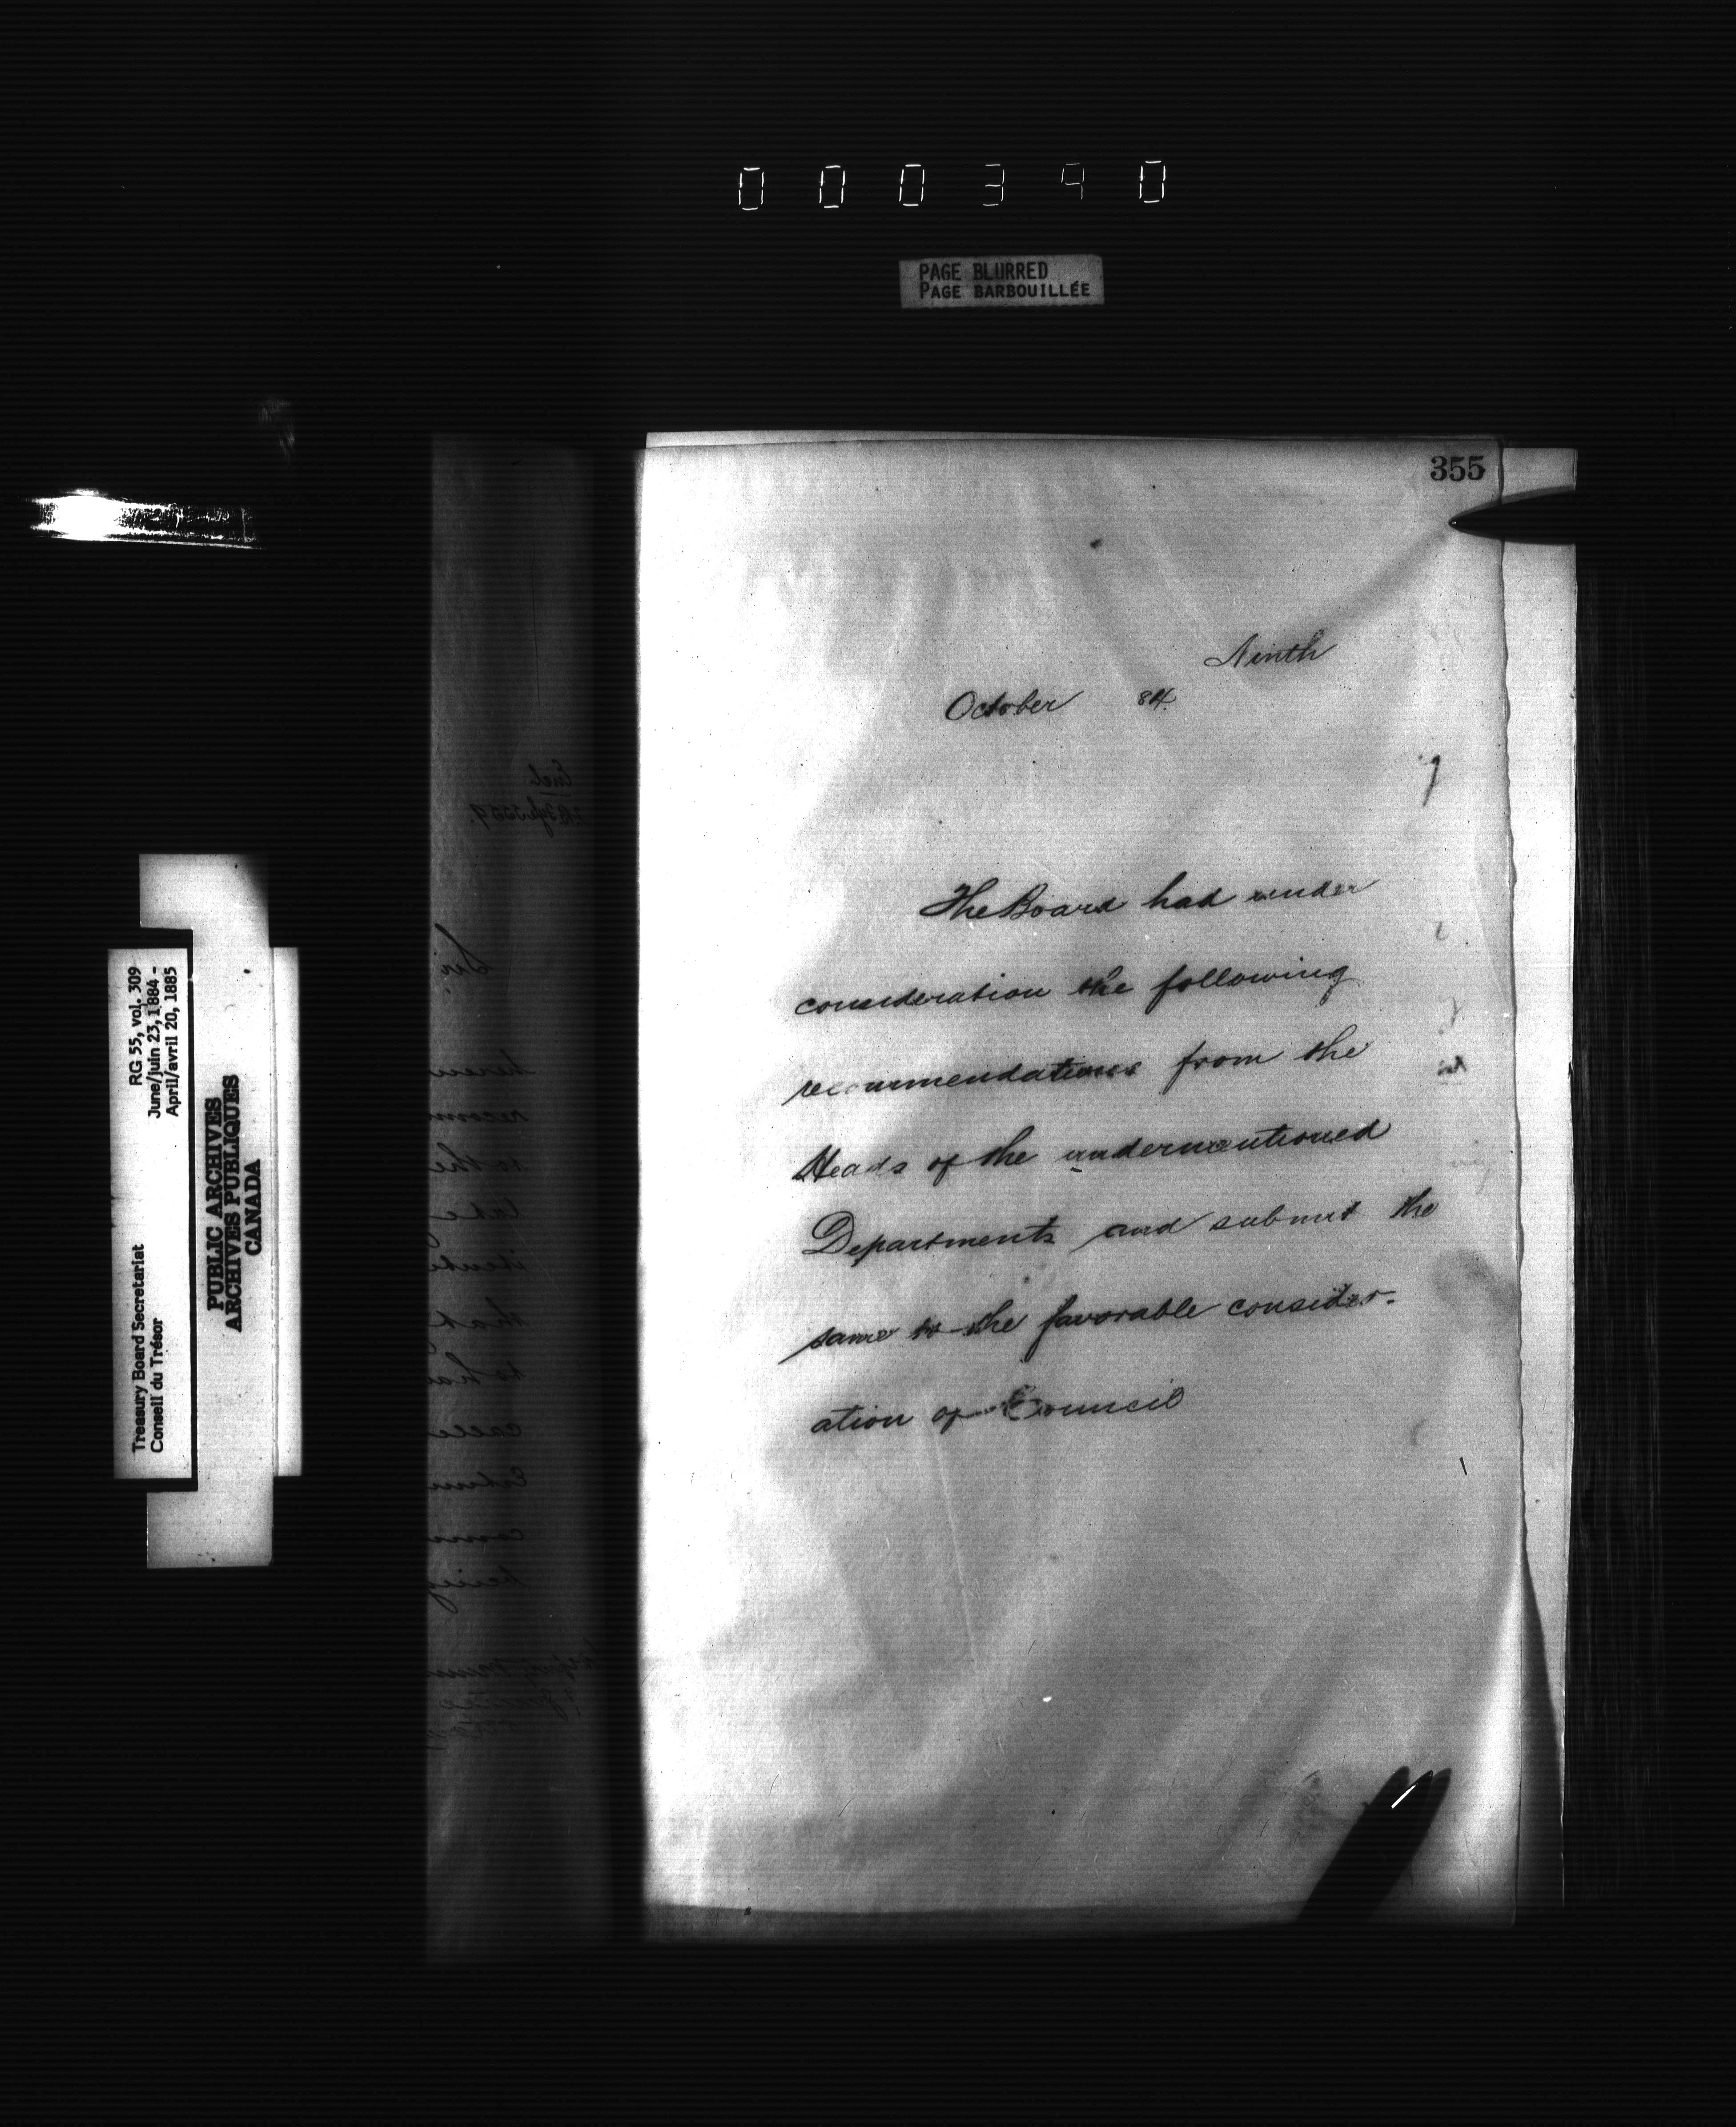 000390
PAGE BLURRED
PAGE BARBOUILLÉE
355
Ninth
October 84.
The Board had under
consideration the following
recommendations from the
Heads of the undermentioned
Departments and submit the
same to the favorable consider-
ation of Council
Treasury Board Secretariat
Conseil du Trésor
RG 55, vol. 309
June/juin 23, 1884 -
April/avril 20, 1885
PUBLIC ARCHIVES
ARCHIVES PUBLIQUES
CANADA
Encl
Sir,
herew
recom
to the
take
that
to ha
being